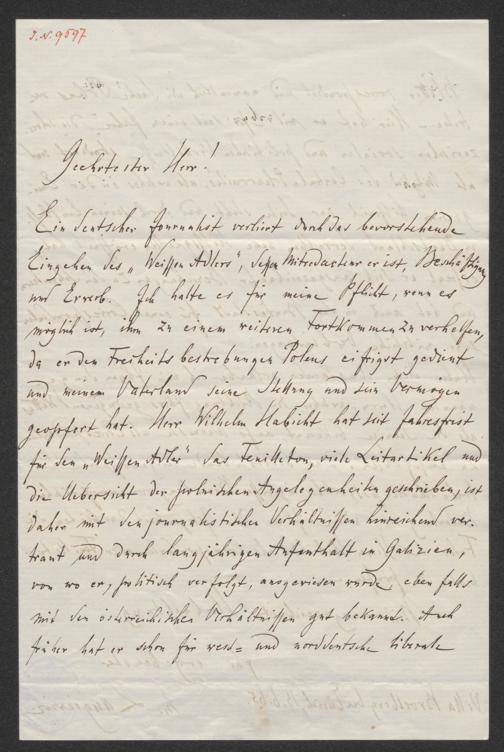 J.N. 9697
Geehrtester Herr!
Ein deutscher Journalist verliert durch das bevorstehende
Eingehen des „Weissen Adlers", dessen Mitredacteur er ist, Beschäftigung
und Erwerb. Ich halte es für meine Pflicht, wenn es
möglich ist, ihm zu einem weiteren Fortkommen zu verhelfen,
da er den Freiheitsbestrebungen Polens eifrigst gedient
und meinem Vaterland seine Stellung und sein Vermögen
geopfert hat. Herr Wilhelm Habicht hat seit Jahresfrist
für den „Weissen Adler" das Feuilleton, viele Leitartikel und
die Uebersicht der polnischen Angelegenheiten geschrieben, ist
daher mit den journalistischen Verhältnissen hinreichend ver-
traut und durch langjährigen Aufenthalt in Galizien,
von wo er, politisch verfolgt, ausgewiesen wurde eben falls
mit den österreichischen Verhältnissen gut bekannt. Auch
früher hat er schon für west= und norddeutsche liberale